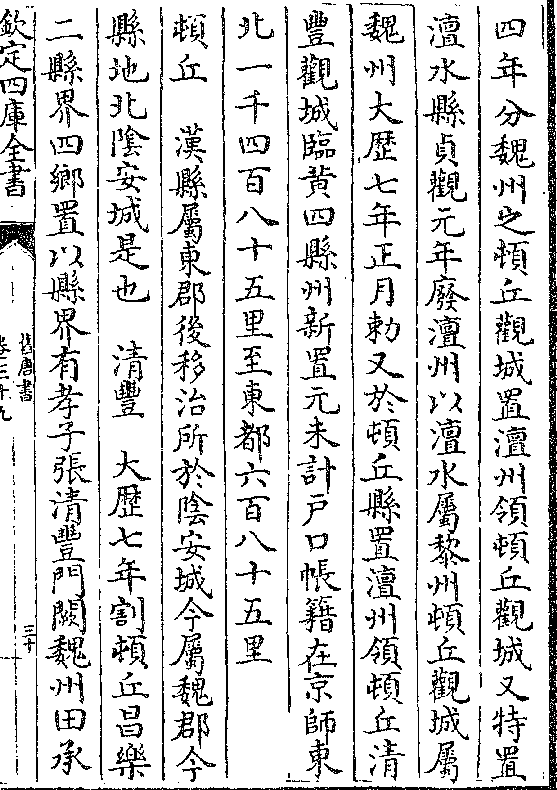 四年分魏州之頓丘觀城置澶州領頓丘觀城又特置
澶水縣貞觀元年廢澶州以澶水屬黎州頓丘觀城屬
魏州大歴七年正月勅又於頓丘縣置澶州領頓丘清
豐觀城臨黄四縣州新置元未計戸口帳籍在京師東
北一千四百八十五里至東都六百八十五里
頓丘　漢縣屬東郡後移治所於陰安城今屬魏郡今
縣地北陰安城是也　清豐　大歴七年割頓丘昌樂
二縣界四鄉置以縣界有孝子張清豐門闕魏州田承
欽定四庫全書
舊唐書
卷三十九
三十